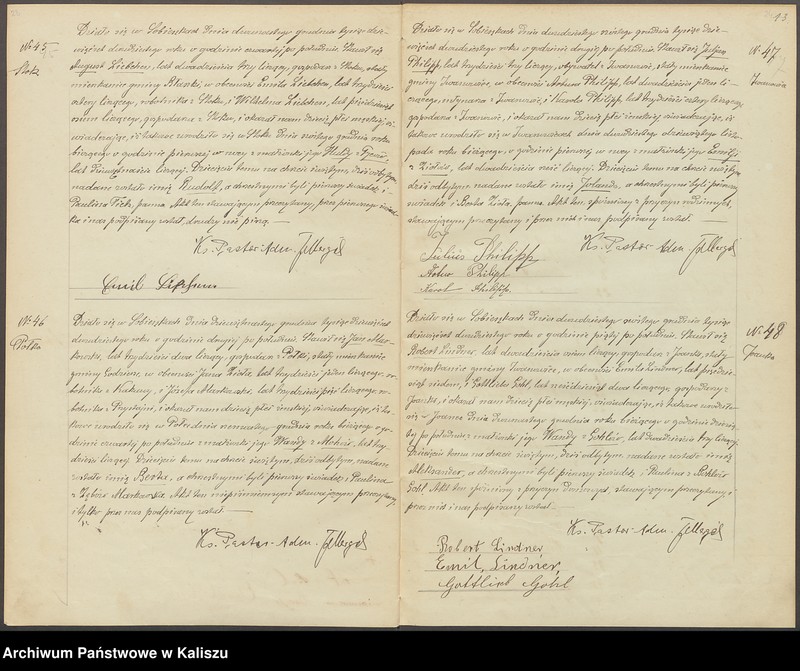 № 45
Stok
Działo się w Sobiesękach dnia dwunastego grudnia tysiąc dzie-
więćset dwudziestego roku o godzinie czwartej po południu. Stawił się
August Liebchen, lat dwadzieścia trzy liczący, gospodarz z Stoku, stały
mieszkaniec gminy Błaszki, w obecności Emila Liebchen, lat trzydzieści
cztery liczącego, robotnika z Stoku, i Wilhelma Liebchen, lat pięćdziesiąt
osiem liczącego, gospodarza z Stoku, i okazał nam dziecię płci męskiej, o-
świadczając, iż takowe urodziło się w Stoku dnia szóstego grudnia roku
bieżącego o godzinie pierwszej w nocy z małżonki jego Huldy z
lat dziewiętnaście liczącej. Dziecięciu temu na chrzcie świętym, dziś odbytym,
nadane zostało imię Rudolf, a chrzestnymi byli pierwszy świadek i
Paulina panna. Akt ten stawającym przeczytany, przez pierwszego świad-
ka i nas podpisany został, drudzy nie piszą.
Ks. Pastor-Adm.
Emil Liebchen
№ 46
Pólko
Działo się w Sobiesękach dnia dziewiętnastego grudnia tysiąc dziewięćset
dwudziestego roku o godzinie drugiej po południu. Stawił się Jan Mar-
kowski, lat trzydzieści dwa liczący, gospodarz z stały mieszkaniec
gminy Godziesze, w obecności Jana Zioła, lat trzydzieści jeden liczącego, ro-
botnika z i Józefa Markowski, lat trzydzieści pięć liczącego, ro-
botnika z i okazał nam dziecię płci żeńskiej, oświadczając, iż ta-
kowe urodziło się w dnia grudnia roku bieżącego o go-
dzinie czwartej po południu z małżonki jego Wandy z lat trzy-
dzieści liczącej. Dziecięciu temu na chrzcie świętym, dziś odbytym, nadane
zostało imię Berta, a chrzestnymi byli pierwszy świadek i Paulina
z Markowska. Akt ten niepiśmiennym stawającym przeczytany,
i tylko przez nas podpisany został.
Ks. Pastor-Adm.
13
№ 47
Iwanowice
Działo się w Sobiesękach dnia dwudziestego szóstego grudnia tysiąc dzie-
więćset dwudziestego roku o godzinie drugiej po południu. Stawił się Juljusz
Philipp, lat trzydzieści trzy liczący, obywatel z Iwanowic, stały mieszkaniec
gminy Iwanowice, w obecności Artura Philipp, lat dwadzieścia jeden li-
czącego, młynarza z Iwanowic, i Karola Philipp, lat trzydzieści cztery liczącego,
gospodarza z Iwanowic, i okazał nam dziecię płci żeńskiej oświadczając, iż
takowe urodziło się w Iwanowicach dnia dwudziestego dziewiątego listo-
pada roku bieżącego, o godzinie pierwszej w nocy z małżonki jego Emilji
z Ziołów, lat dwadzieścia sześć liczącej. Dziecięciu temu na chrzcie świętym,
dziś odbytym nadane zostało imię Jolanda, a chrzestnymi byli pierwszy
świadek i Berta Zioła, panna. Akt ten, spóźniony z przyczyn rodzinnych,
stawającym przeczytany i przez nich i nas podpisany został.
Ks. Pastor Adm.
Julius Philipp
Artur Philipp
Karol Philipp.
№ 48
Joanka
Działo się w Sobiesękach dnia dwudziestego szóstego grudnia tysiąc
dziewięćset dwudziestego roku o godzinie piątej po południu. Stawił się
Robert Lindner, lat dwadzieścia osiem liczący, gospodarz z Joanki, stały
mieszkaniec gminy Iwanowice, w obecności Emila Lindner, lat pięćdzie-
siąt siedem, i Gottlieba Gohl, lat sześćdziesiąt dwa liczącego, gospodarzy z
Joanki, i okazał nam dziecię płci męskiej, oświadczając, iż takowe urodziło
się w Joance dnia dwunastego grudnia roku bieżącego o godzinie dziewią-
tej po południu z małżonki jego Wandy z Gohlów, lat dwadzieścia trzy liczącej.
Dziecięciu temu na chrzcie świętym, dziś odbytym nadane zostało imię
Aleksander, a chrzestnymi byli pierwszy świadek i Paulina z
Gohl. Akt ten spóźniony z przyczyn stawającym przeczytany i
przez nich i nas podpisany został.
Ks. Pastor-Adm.
Robert Lindner
Emil, Lindner,
Gottlieb Gohl
Archiwum Państwowe w Kaliszu